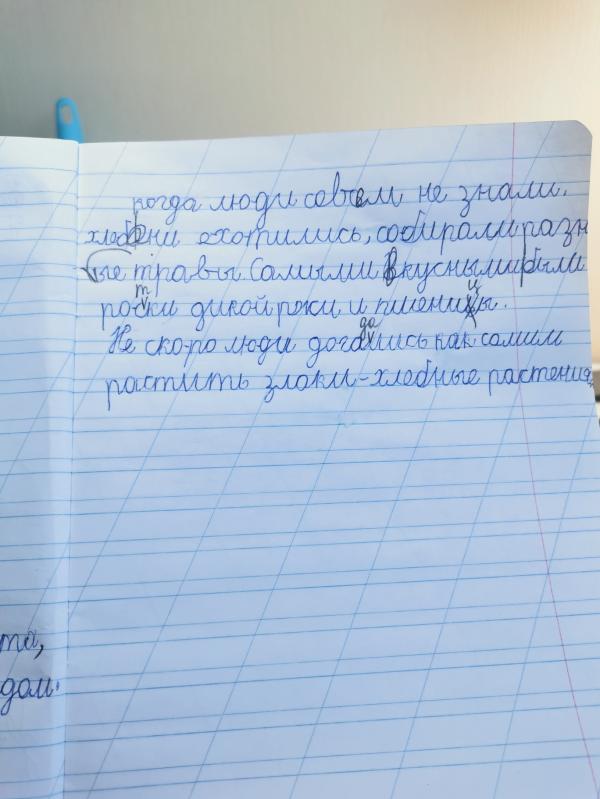 когда люди совтем не знали.
хлебОни охотились, собирали разн
ые травы Самыми вкусными были
ростки дикой ржи и пшеницы.
Не скоро люди догадались как самим
растить злаки-хлебные растения
та,
дом.